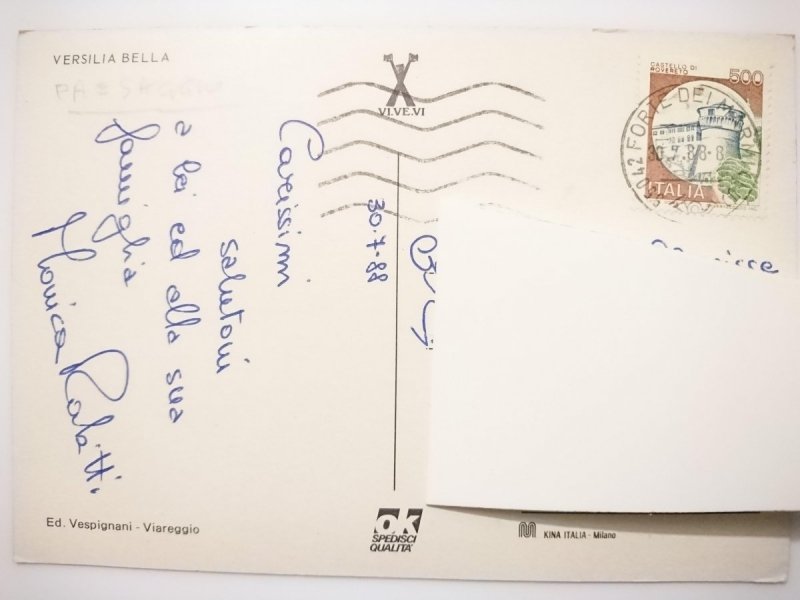 VERSILIA BELLA
PAESAGGIO
VI.VE.VI
CASTELLO DI
ROVERETO
500
ITALIA
FORTE DEI MARMI
30.7.88-8
30.7.88
Carissimi
salutoni
a lei ed alla sua
famiglia
Monica
Ed. Vespignani - Viareggio
OK
SPEDISCI
QUALITA'
KINA ITALIA - Milano